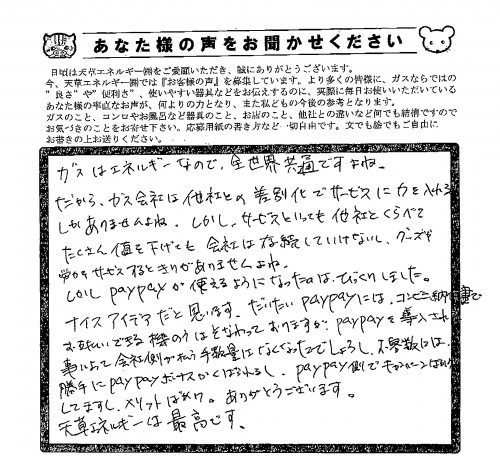 あなた様の声をお聞かせください
日頃は天草エネルギー㈱をご愛顧いただき、誠にありがとうございます。
今、天草エネルギー㈱では『お客様の声』を募集しています。より多くの皆様に、ガスならではの
"良さ"や"便利さ"、使いやすい器具などをお伝えするのに、実際に毎日お使いいただいている
あなた様の率直なお声が、何よりの力となり、また私どもの今後の参考となります。
ガスのこと、コンロやお風呂など器具のこと、お店のこと、他社との違いなど何でも結構ですので
お気づきのことをお寄せ下さい。応募用紙の書き方など一切自由です。文でも絵でもご自由に
お書きの上お送りください。
ガスはエネルギーなので、全世界共通ですよね。
だから、ガス会社は他社との差別化でサービスに力を入れる
しかありませんよね。しかし、サービスといっても他社とくらべて
たくさん値を下げても会社は存続していけないし、グッズや
サービスするときりがありませんよね。
しかしpaypayが使えるようになったのは、びっくりしました。
ナイスアイデアだと思います。だいたいpaypayには、コンビニ納付書で
お支払いできる機のうはそなわっておりますが、paypayを導入され
事によって会社側が払う手数量はなくなったでしょうし、お客数には、
勝手にpaypayボーナスがくばられるし、paypay側でキャンペーンばかり
してますし、メリットばかり。ありがとうございます。
天草エネルギーは最高です。